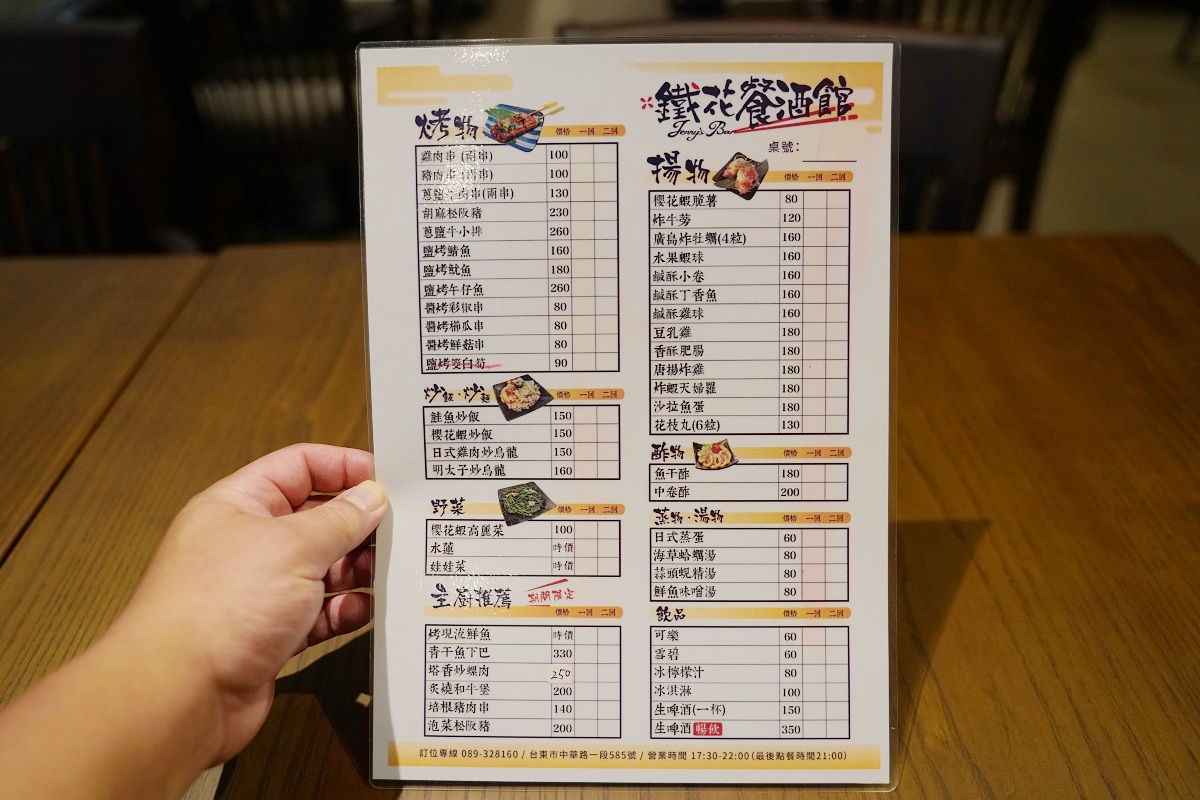 烤物 價格 一回 二回
雞肉串(兩串) 100
豬肉串(兩串) 100
蔥鹽牛肉串(兩串) 130
胡麻松阪豬 230
蔥鹽牛小排 260
鹽烤鯖魚 160
鹽烤魷魚 180
鹽烤午仔魚 260
醬烤彩椒串 80
醬烤櫛瓜串 80
醬烤鮮菇串 80
鹽烤筊白筍 90
炒飯·炒麵 價格 一回 二回
鮭魚炒飯 150
櫻花蝦炒飯 150
日式雞肉炒烏龍 150
明太子炒烏龍 160
野菜 價格 一回 二回
櫻花蝦高麗菜 100
水蓮 時價
娃娃菜 時價
主廚推薦
價格 一回 二回
烤現流鮮魚 時價
青干魚下巴 330
塔香炒螺肉 250
炙燒和牛堡 200
培根豬肉串 140
泡菜松阪豬 200
鐵花餐酒館
Jenny's Bar
桌號:
揚物 價格 一回 二回
櫻花蝦脆薯 80
炸牛蒡 120
廣島炸牡蠣(4粒) 160
水果蝦球 160
鹹酥小卷 160
鹹酥丁香魚 160
鹹酥雞球 160
豆乳雞 180
香酥肥腸 180
唐揚炸雞 180
炸蝦天婦羅 180
沙拉魚蛋 180
花枝丸(6粒) 130
酢物 價格 一回 二回
魚干酢 180
中卷酢 200
蒸物·湯物 價格 一回 二回
日式蒸蛋 60
海草蛤蠣湯 80
蒜頭蜆精湯 80
鮮魚味噌湯 80
飲品 價格 一回 二回
可樂 60
雪碧 60
冰檸檬汁 80
冰淇淋 100
生啤酒(一杯) 150
生啤酒 暢飲 350
訂位專線 089-328160 / 台東市中華路一段585號 / 營業時間 17:30-22:00(最後點餐時間21:00)